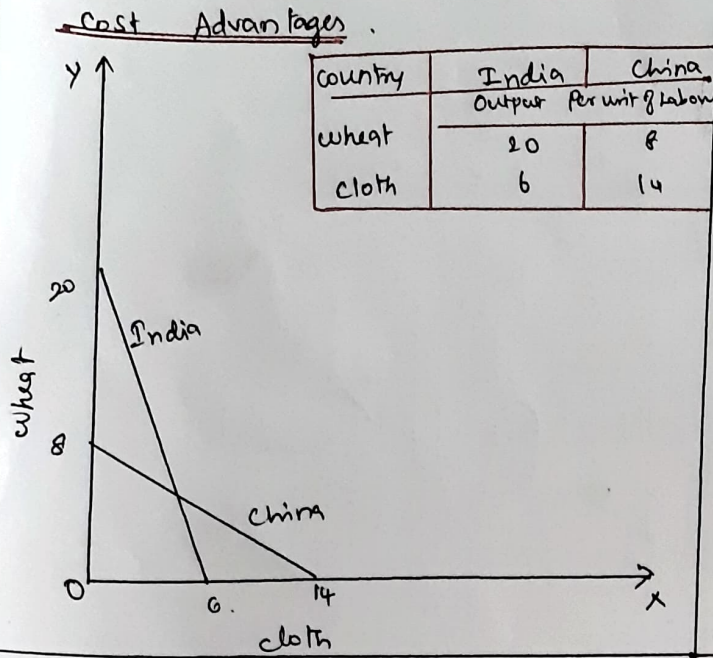 Cost Advantages.
Y
Country India China
Output Per unit of Labon
wheat 20 8
cloth 6 14
20
India
wheat
8
China
O
6.
14
X
cloth